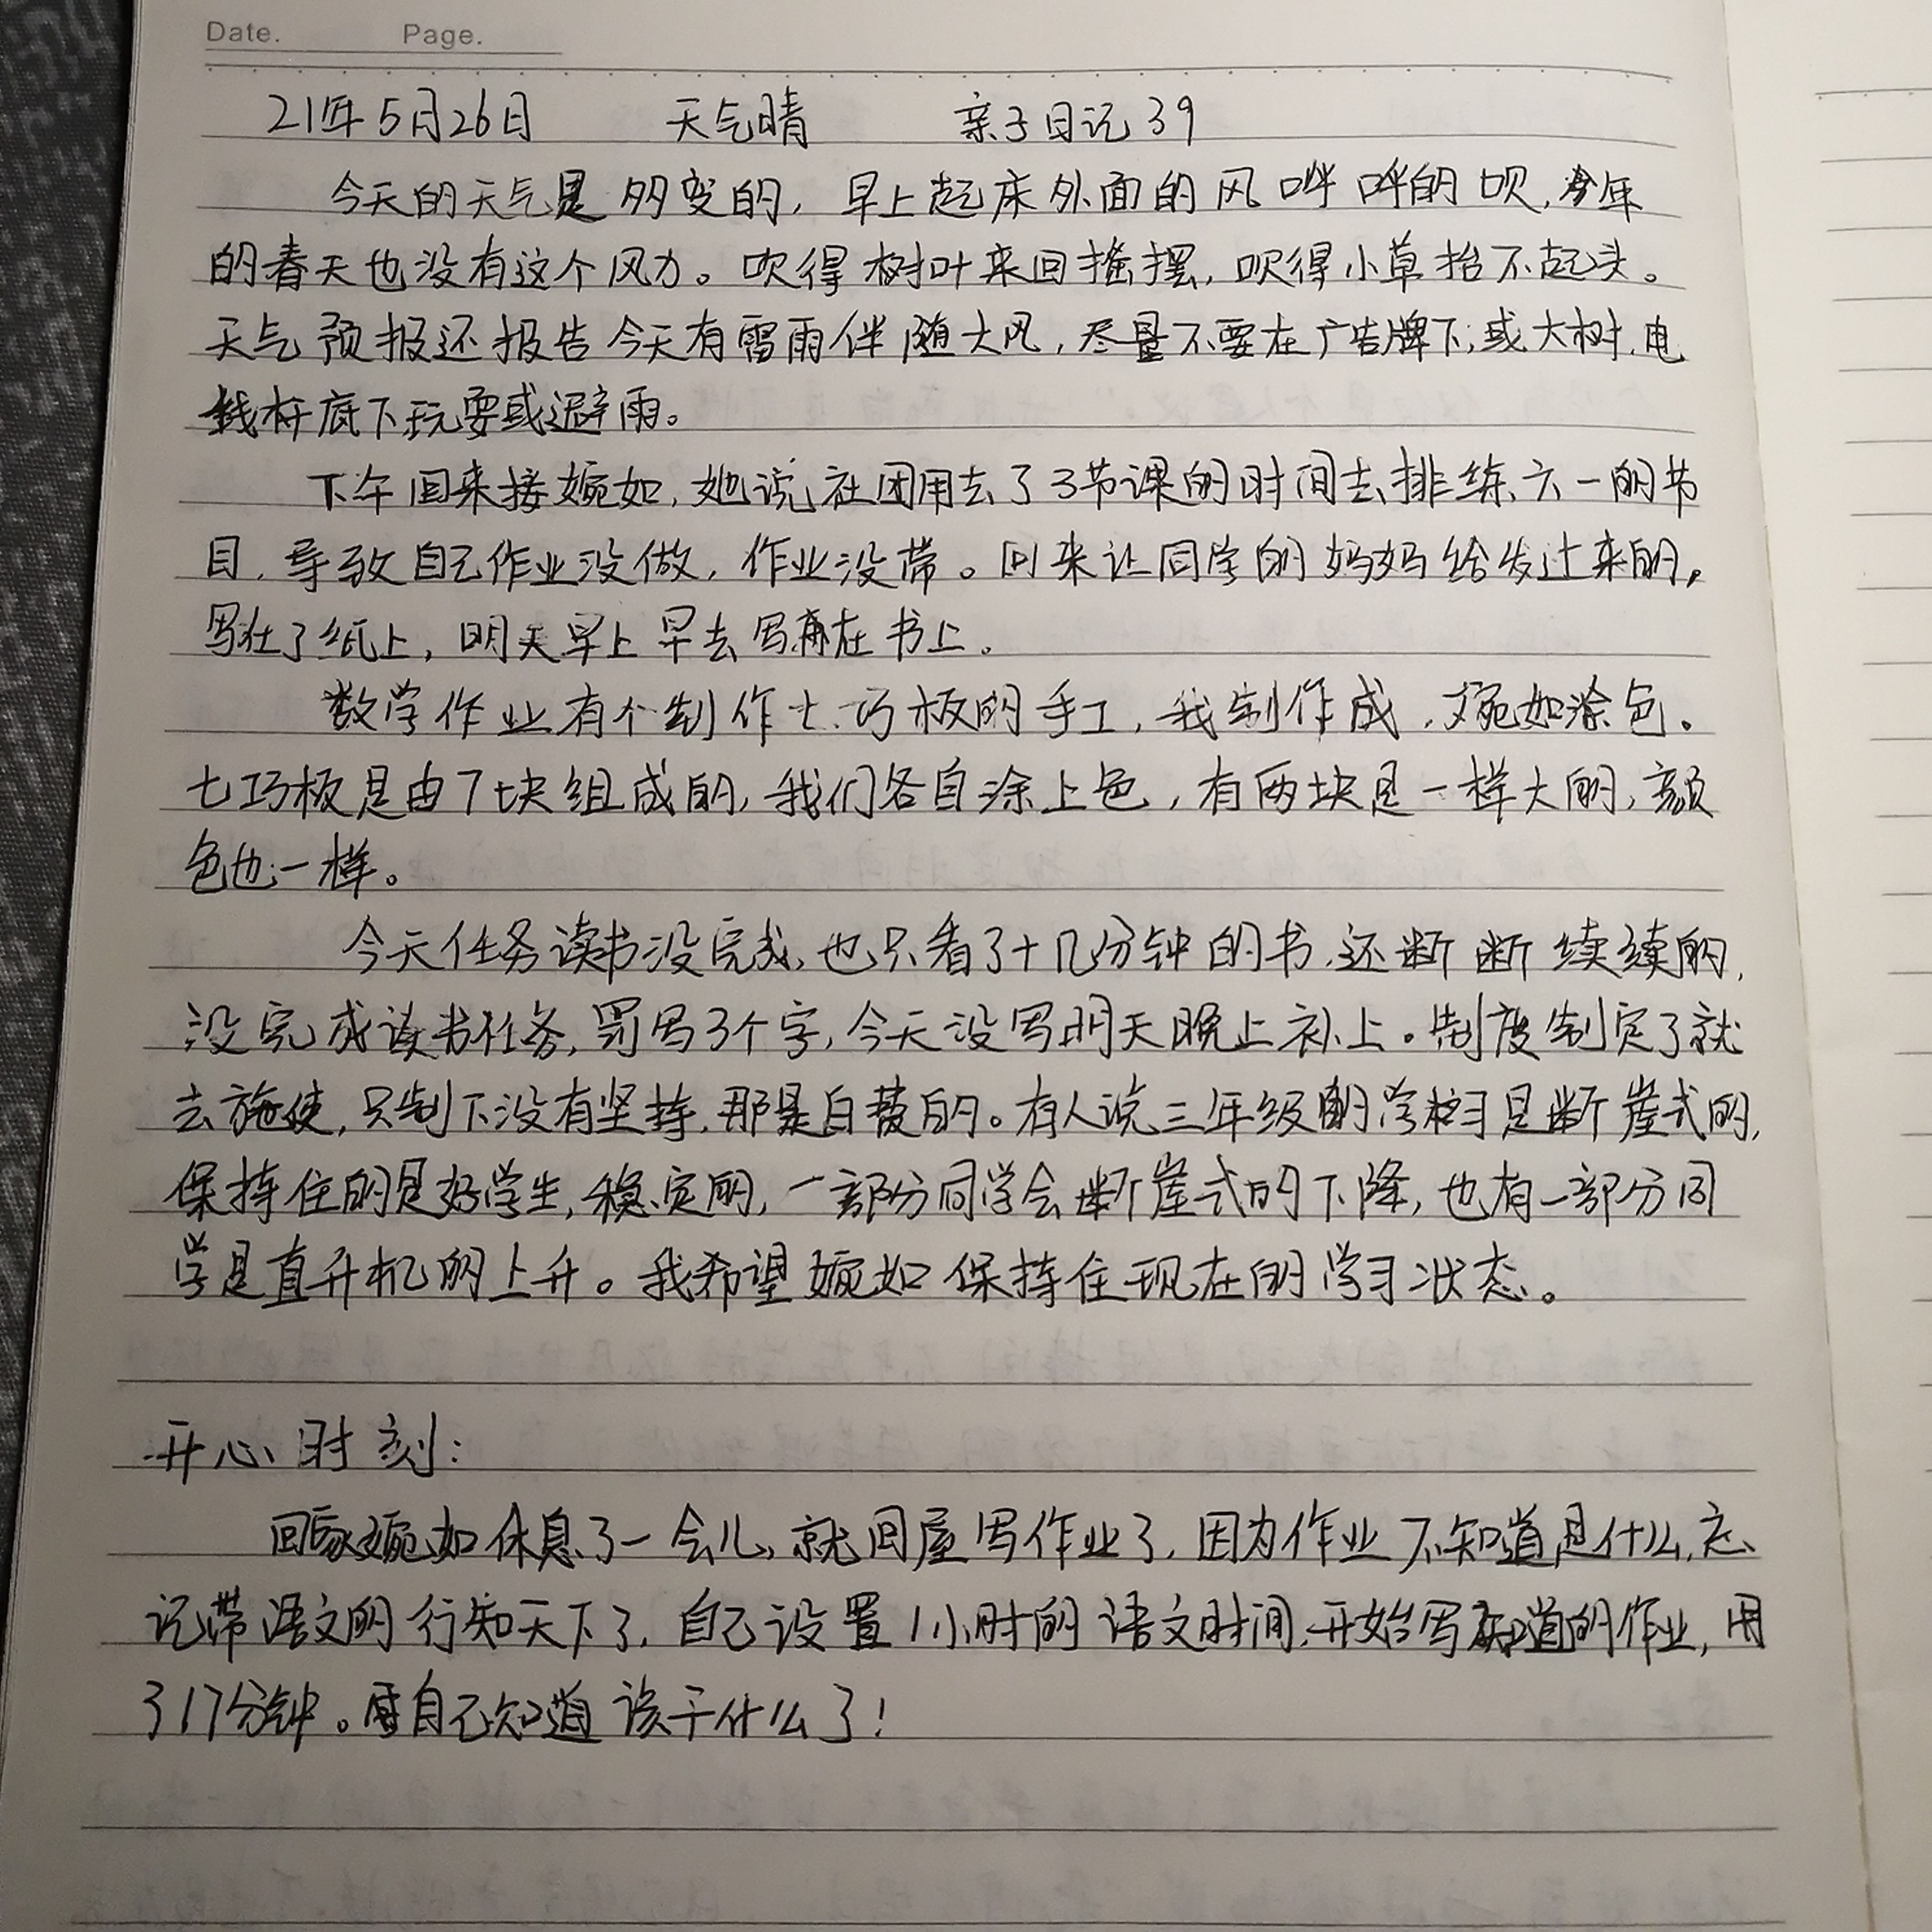 Date. Page.
21年5月26日 天气晴 亲子日记39
今天的天气是多变的，早上起床外面的风呼呼的吹，今年
的春天也没有这个风力。吹得树叶来回摇摆，吹得小草抬不起头。
天气预报还报告今天有雷雨伴随大风，尽量不要在广告牌下，或大树、电
线杆底下玩耍或避雨。
下午回来接婉如，她说社团用去了3节课的时间去排练六一的节
目，导致自己作业没做，作业没带。回来让同学的妈妈给发过来的，
写在了纸上，明天早上早去写再在书上。
数学作业有个制作七巧板的手工，我制作成，婉如涂色。
七巧板是由7块组成的，我们各自涂上色，有两块是一样大的，颜
色也一样。
今天任务读书没完成，也只看了十几分钟的书，还断断续续的，
没完成读书任务，罚写3个字，今天没写明天晚上补上。制度制定了就
去施使，只制下没有坚持，那是白费的。有人说三年级的学习是断崖式的，
保持住的是好学生，稳定的，一部分同学会断崖式的下降，也有一部分同
学是直升机的上升。我希望婉如保持住现在的学习状态。
开心时刻：
回家婉如休息了一会儿，就回屋写作业了，因为作业不知道是什么，忘
记带语文的行知天下了，自己设置1小时的语文时间，开始写知道的作业，用
了17分钟。自己知道该干什么了！